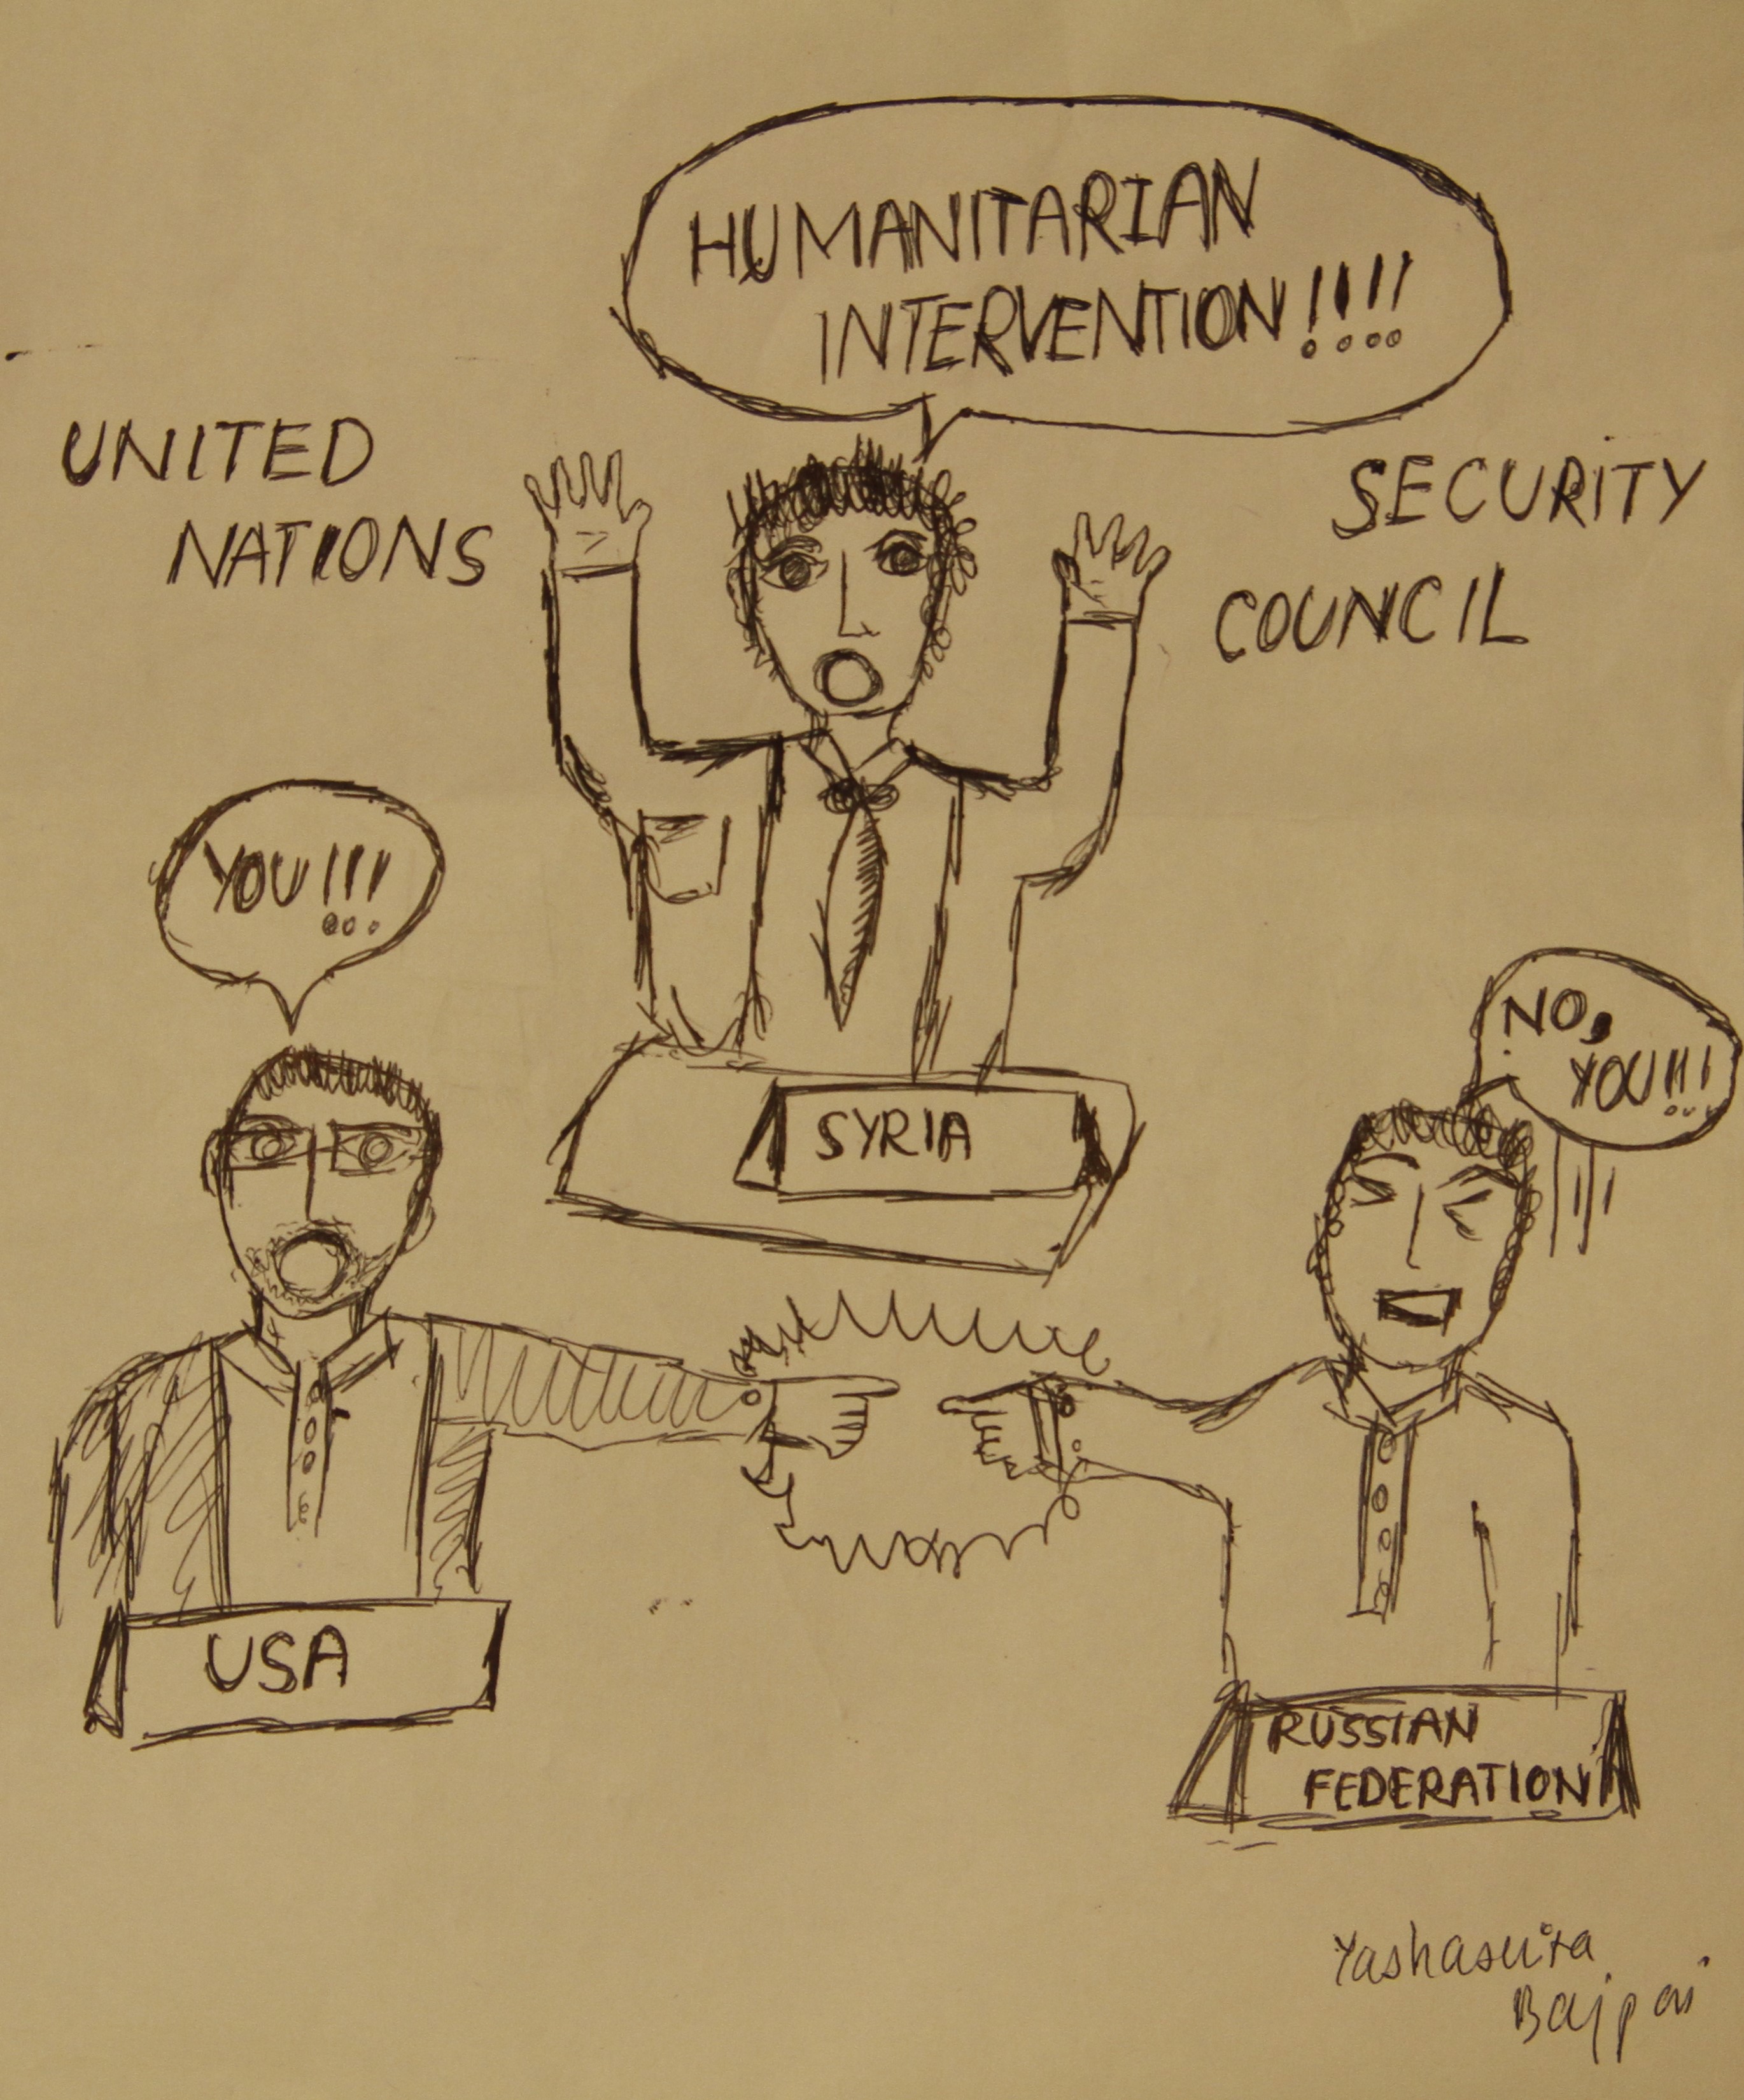 HUMANITARIAN
INTERVENTION!!!!
UNITED
NATIONS
SECURITY
COUNCIL
YOU!!!
NO,
YOU!!!
SYRIA
USA
RUSSIAN
FEDERATION
Bajpai